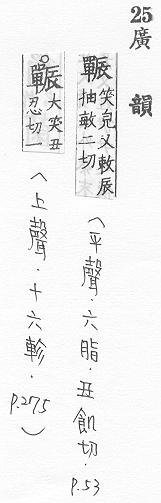 25 廣韻
辴 笑皃又敕辰
抽敏二切
(平聲．六脂．丑飢切．p.53
辴 大笑丑
忍切一
(上聲．十六軫．p.275)